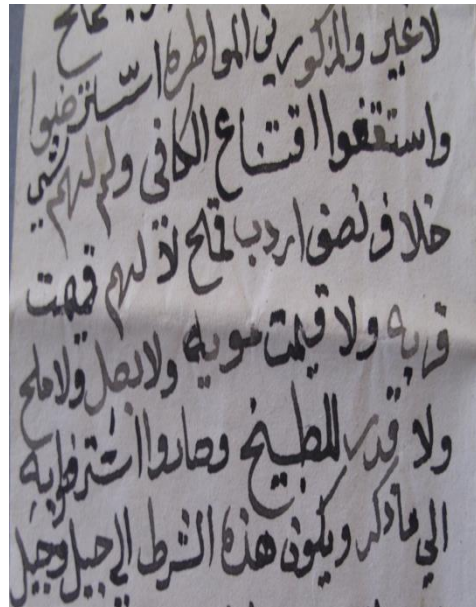 قمح
لا غير والمذكورين المواطره استرضوا
واستقفوا اقتناع الكافى ولم لهم شي
خلاف نصف اردب قمح لا لهم قيمت
قربه ولا قيمت مويه ولا بصل ولا ملح
ولا قدر للطبيخ وصاروا
الي ماذكر ويكون هذه الشرط الي جيل وجيل